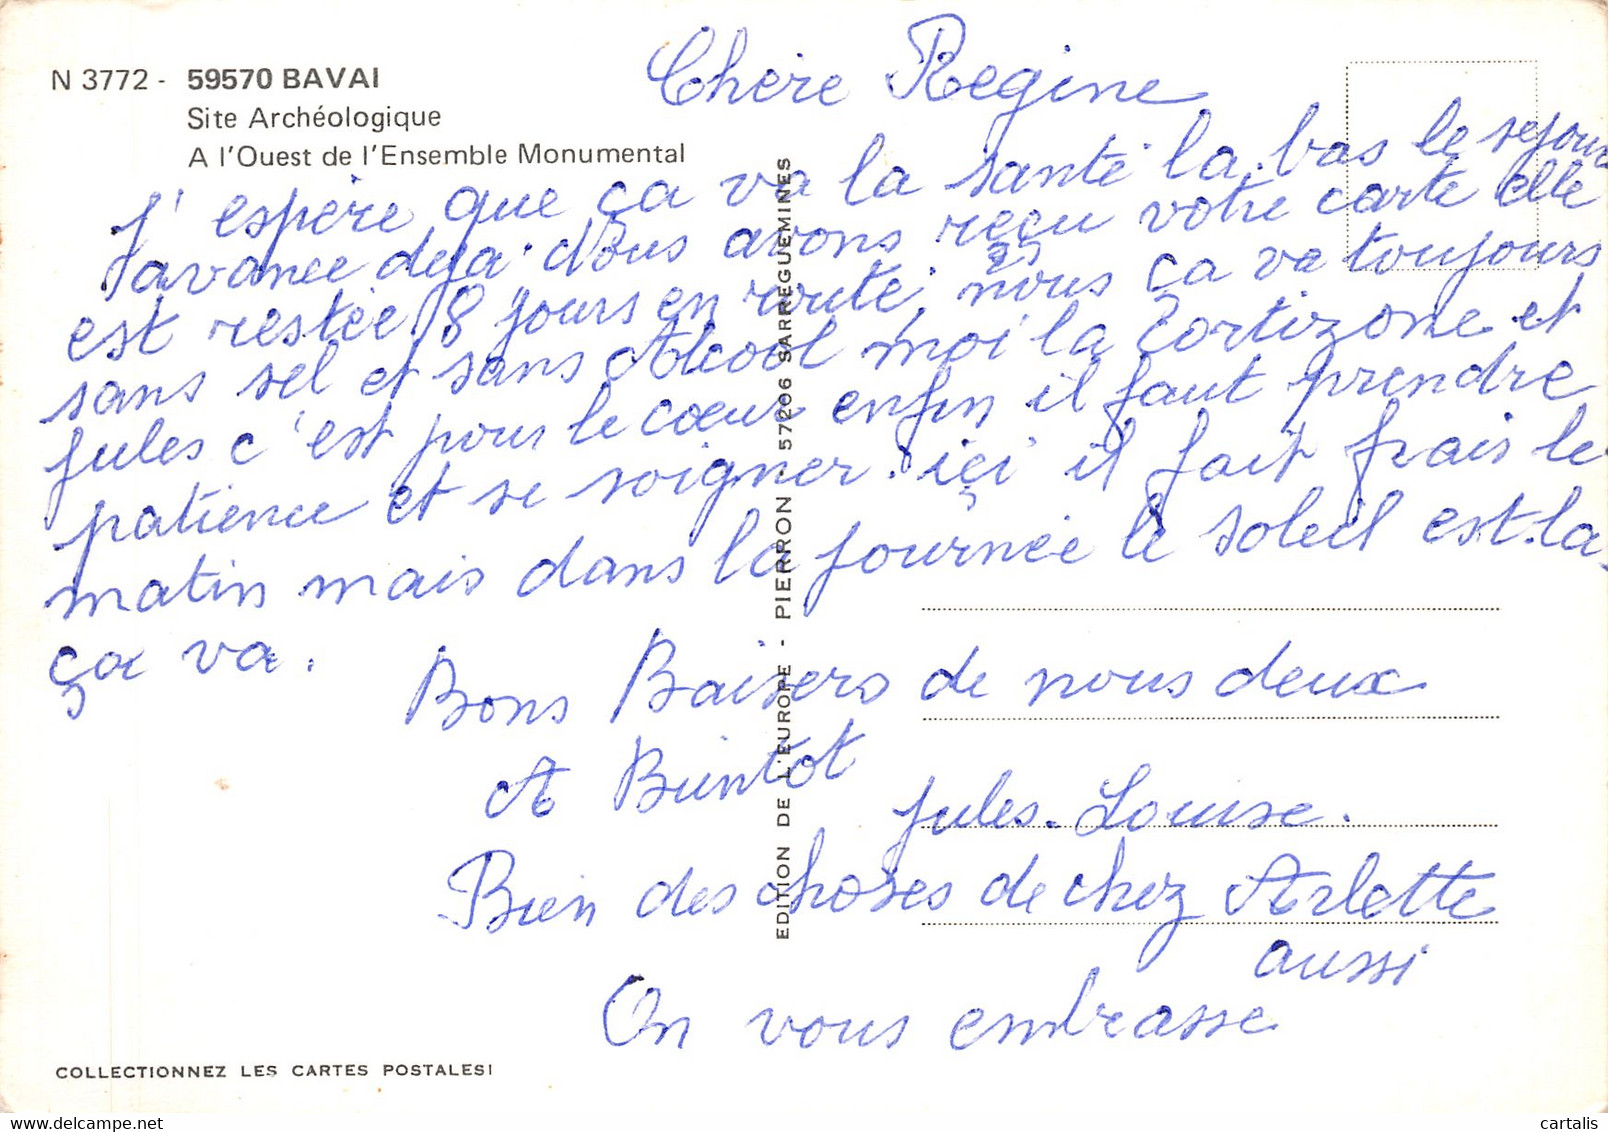 N 3772 - 59570 BAVAI
Site Archéologique
A l'Ouest de l'Ensemble Monumental
Chère Regine
J'espère que ça va la santé la bas le sejour
avance deja. Nous avons reçu votre carte elle
est restée 8 jours en route, nous ça va toujours
sans sel et sans Alcool moi la Cortizone et
jules c'est pour le cœur enfin il faut prendre
patience et se soigner. içi il fait frais le
matin mais dans la journée le soleil est la
ça va.
Bons Baisers de nous deux
A Bientot
jules. Louise.
Bien des choses de chez Arlette
aussi
On vous embrasse
EDITION DE L'EUROPE - PIERRON - 57206 SARREGUEMINES
COLLECTIONNEZ LES CARTES POSTALES!
cartalis